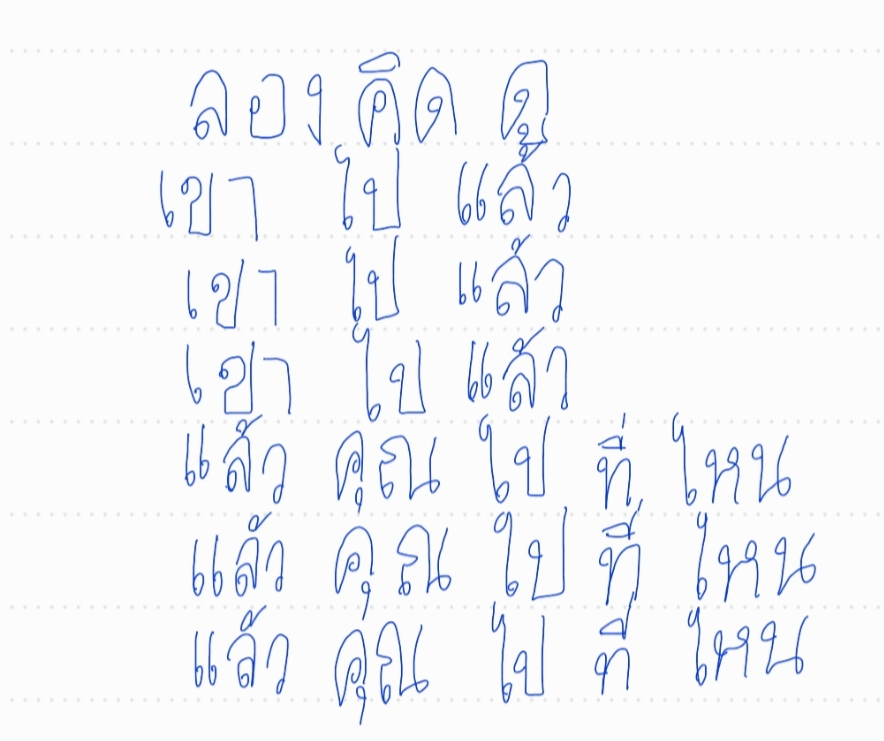 ลองคิด ดู
เขา ไป แล้ว
เขา ไป แล้ว
เขา ไป แล้ว
แล้ว คุณ ไป ที่ ไหน
แล้ว คุณ ไป ที่ ไหน
แล้ว คุณ ไป ที่ ไหน